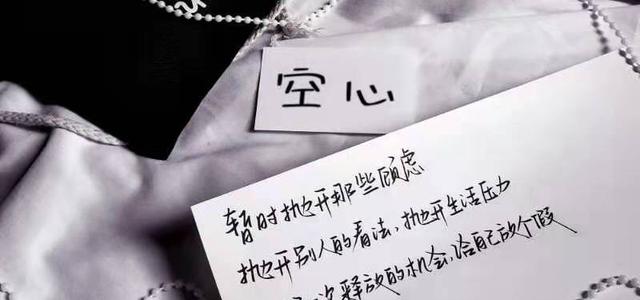 空心
暂时抛开那些顾虑
抛开别人的看法,抛开生活压力
次释放的机会,给自己放个假